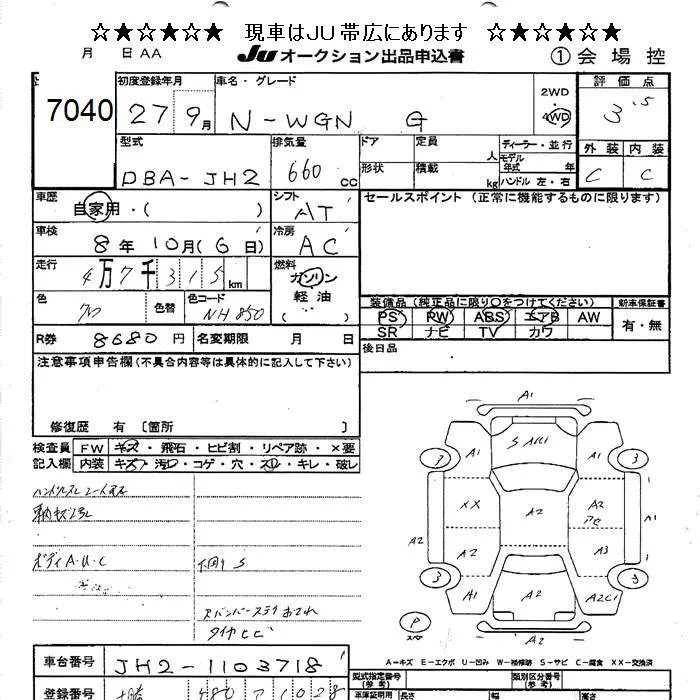 ☆★☆★☆★ 現車はJU帯広にあります ☆★☆★☆★
月 日 AA JU オークション出品申込書 ① 会場控
7040
初度登録年月 車名・グレード 評価点
27 9月 N-WGN G 2WD 4WD 3.5
型式 排気量 ドア 定員 人 ディーラー・並行 外装 内装
モデル 年式 年
DBA-JH2 660cc 形状 積載 kg ハンドル 左・右 C C
車歴 自家用・( ) シフト AT セールスポイント (正常に機能するものに限ります)
車検 8年10月(6日) 冷房 AC
走行 4万7千315km 燃料 ガソリン
軽油
( )
色 色替 色コード NH850
装備品 (純正品に限り○をつけてください) 新車保証書
PS PW ABS エアB AW 有・無
SR ナビ TV カワ
R券 8680円 名変期限 月 日 後日品
注意事項申告欄(不具合内容等は具体的に記入して下さい)
修復歴 有 〔箇所 〕
検査員 FW キズ・飛石・ヒビ割・リペア跡・×要
記入欄 内装 キズ・汚れ・コゲ・穴・スレ・キレ・破レ
ボディA.U.C
下回りS
タイヤヒビ
A1
S A1U1
3 A1 A1 3
XX A2 A2
A1
A2 A2 A3
3 A1 A2 A2C1 3
P
A2
A-キズ E-エクボ U-凹み W-補修跡 S-サビ C-腐食 XX-交換済
車台番号 JH2-1103718
型式指定番号 類別区分番号
(参考) (参考)
登録番号 十勝 480 ア 1028
車庫証明用 長さ 幅 高さ